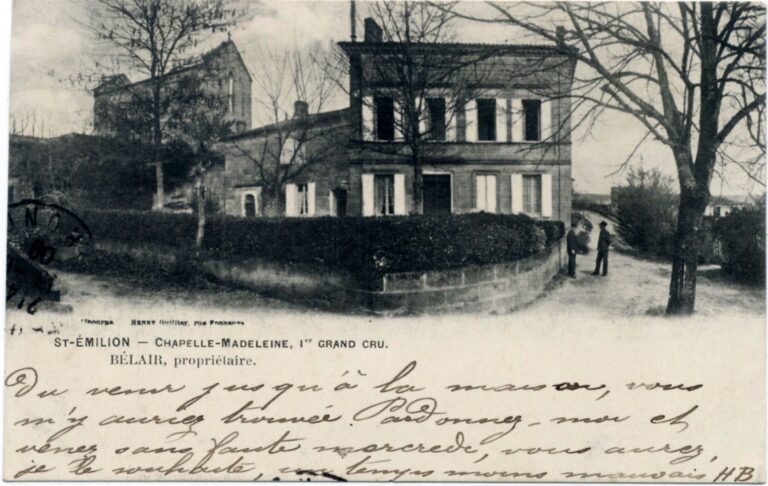 Libourne Henry Guillier, rue Fonneuve
ST-ÉMILION — CHAPELLE-MADELEINE, 1er GRAND CRU.
BÉLAIR, propriétaire.
Du venir jusqu'à la maison, vous
m'y auriez trouvée. Pardonnez-moi et
venez sans faute mercredi, vous aurez,
je le souhaite, un temps moins mauvais HB